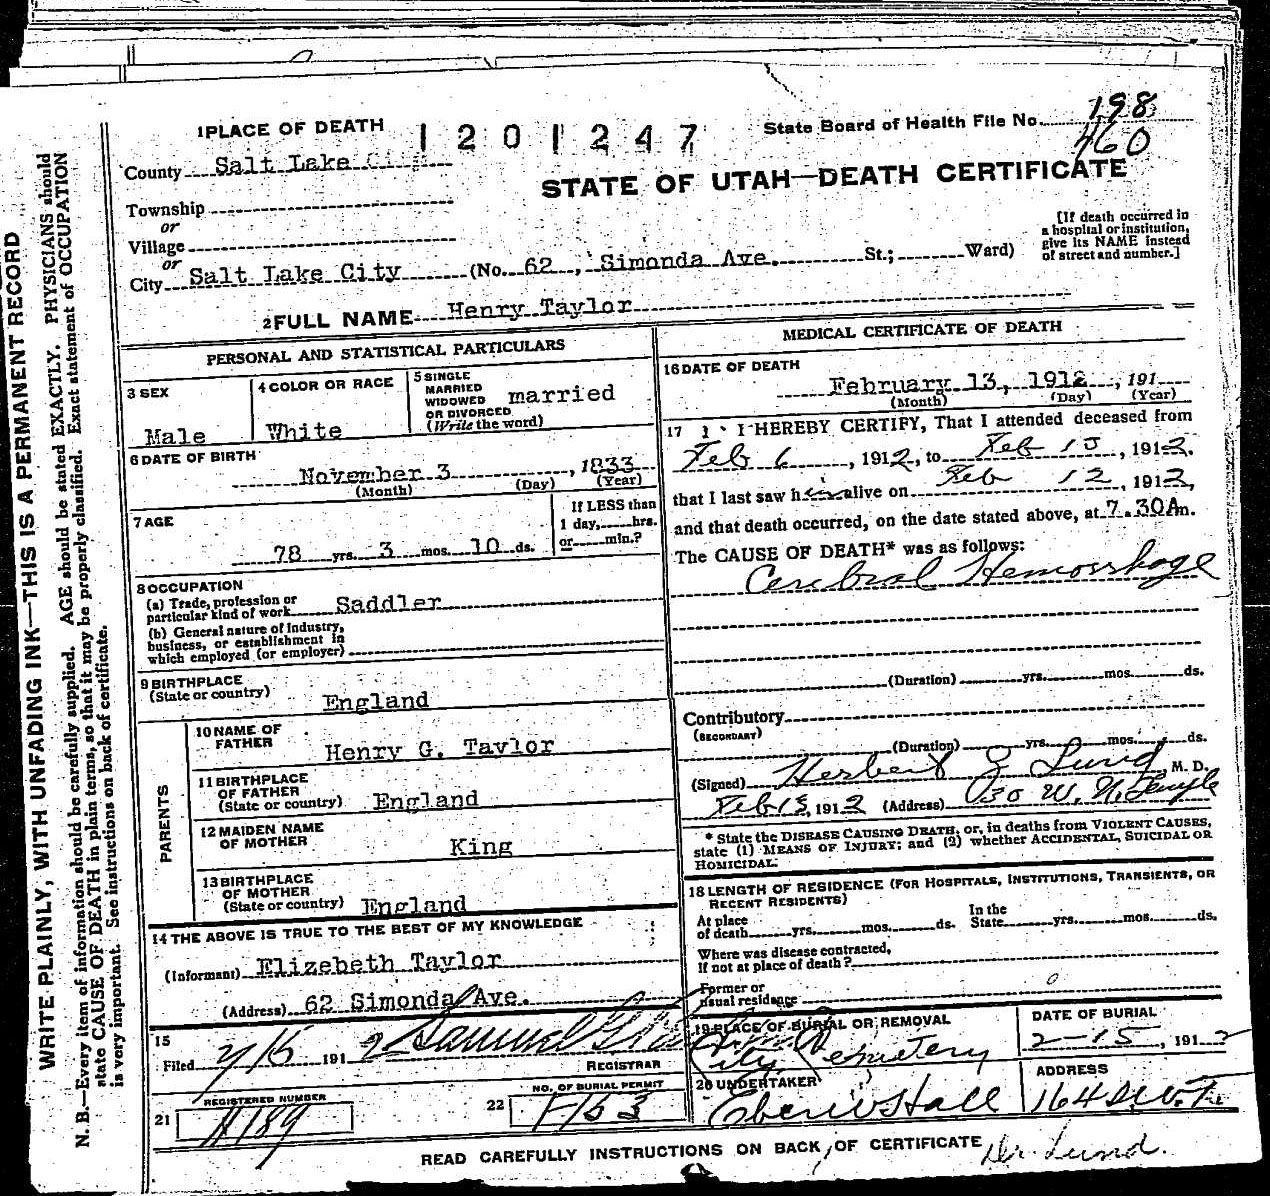 1 PLACE OF DEATH
1201247
State Board of Health File No. 198
460
County Salt Lake
STATE OF UTAH—DEATH CERTIFICATE
Township
or
Village
or
City Salt Lake City (No. 62, Simonda Ave. St.; Ward)
[If death occurred in
a hospital or institution,
give its NAME instead
of street and number.]
2 FULL NAME Henry Taylor
PERSONAL AND STATISTICAL PARTICULARS
3 SEX
Male
4 COLOR OR RACE
White
5 SINGLE
MARRIED
WIDOWED
OR DIVORCED
(Write the word)
married
6 DATE OF BIRTH
November 3, 1833
(Month) (Day) (Year)
7 AGE
78 yrs. 3 mos. 10 ds.
If LESS than
1 day, hrs.
or min.?
8 OCCUPATION
(a) Trade, profession or
particular kind of work Saddler
(b) General nature of industry,
business, or establishment in
which employed (or employer)
9 BIRTHPLACE
(State or country) England
PARENTS
10 NAME OF
FATHER Henry G. Taylor
11 BIRTHPLACE
OF FATHER
(State or country) England
12 MAIDEN NAME
OF MOTHER King
13 BIRTHPLACE
OF MOTHER
(State or country) England
14 THE ABOVE IS TRUE TO THE BEST OF MY KNOWLEDGE
(Informant) Elizebeth Taylor
(Address) 62 Simonda Ave.
15
Filed 2/15 1912 Samuel G.
REGISTRAR
REGISTERED NUMBER
21 H189
NO. OF BURIAL PERMIT
22 F153
MEDICAL CERTIFICATE OF DEATH
16 DATE OF DEATH
February 13, 1912, 191
(Month) (Day) (Year)
17 I HEREBY CERTIFY, That I attended deceased from
Feb 6, 1912, to Feb 13, 1912.
that I last saw him alive on Feb 12, 1912,
and that death occurred, on the date stated above, at 7.30 A m.
The CAUSE OF DEATH* was as follows:
Cerebral Hemorrhage
(Duration) yrs. mos. ds.
Contributory
(SECONDARY)
(Duration) yrs. mos. ds.
(Signed) Herbert Z Lund, M. D.
Feb 13, 1912 (Address) 30 W. N. Temple
* State the DISEASE CAUSING DEATH, or, in deaths from VIOLENT CAUSES,
state (1) MEANS OF INJURY; and (2) whether ACCIDENTAL, SUICIDAL OR
HOMICIDAL.
18 LENGTH OF RESIDENCE (FOR HOSPITALS, INSTITUTIONS, TRANSIENTS, OR
RECENT RESIDENTS)
At place
of death yrs. mos. ds.
In the
State yrs. mos. ds.
Where was disease contracted,
If not at place of death?
Former or
usual residence
19 PLACE OF BURIAL OR REMOVAL
City Cemetery
DATE OF BURIAL
2-15, 1912
20 UNDERTAKER
Eber W Hall
ADDRESS
164 S. W. T.
READ CAREFULLY INSTRUCTIONS ON BACK OF CERTIFICATE
Dr. Lund.
WRITE PLAINLY, WITH UNFADING INK—THIS IS A PERMANENT RECORD
N. B.—Every item of information should be carefully supplied. AGE should be stated EXACTLY. PHYSICIANS should
state CAUSE OF DEATH in plain terms, so that it may be properly classified. Exact statement of OCCUPATION
is very important. See instructions on back of certificate.